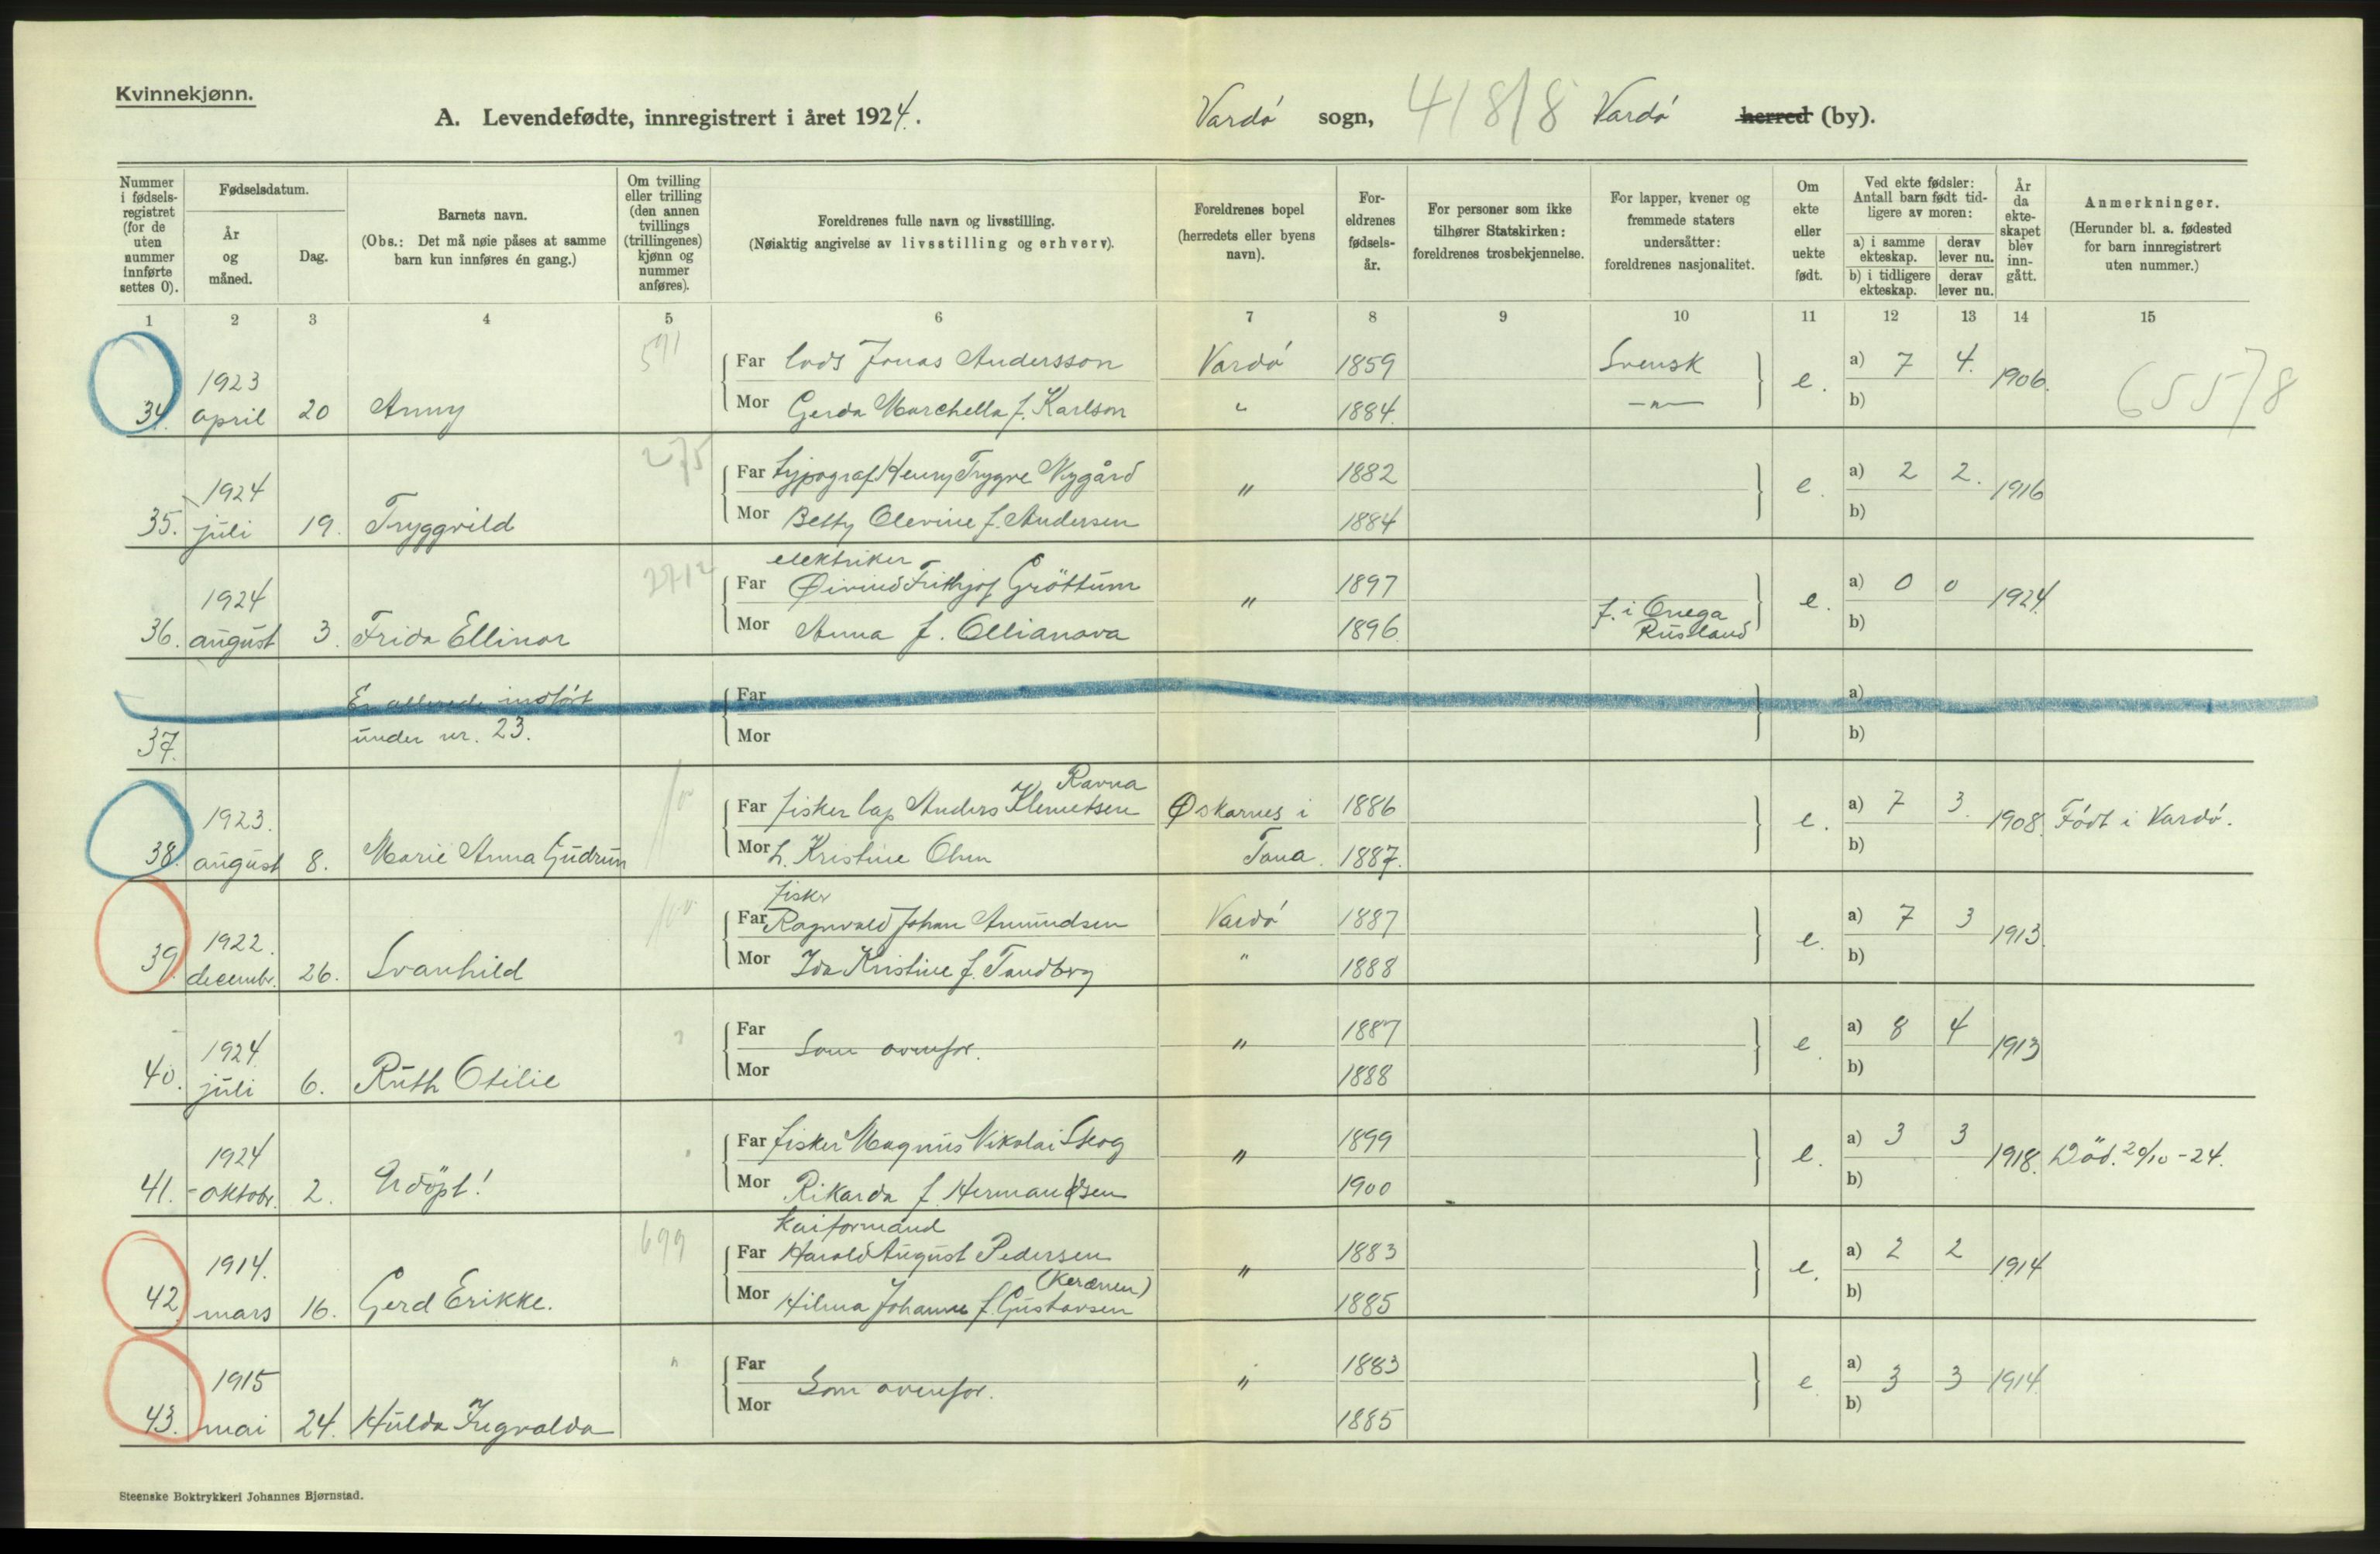 Kvinnekjønn.
A. Levendefødte, innregistrert i året 1924.
Vardø sogn, 418/8 Vardø herred (by).
Nummer i fødsels-registret (for de uten nummer innførte settes 0).
Fødselsdatum.
År og måned.
Dag.
Barnets navn.
(Obs.: Det må nøie påses at samme barn kun innføres én gang.)
Om tvilling eller trilling (den annen tvillings (trillingenes) kjønn og nummer anføres).
Foreldrenes fulle navn og livsstilling.
(Nøiaktig angivelse av livsstilling og erhverv).
Foreldrenes bopel (herredets eller byens navn).
For-eldrenes fødsels-år.
For personer som ikke tilhører Statskirken: foreldrenes trosbekjennelse.
For lapper, kvener og fremmede staters undersåtter: foreldrenes nasjonalitet.
Om ekte eller uekte født.
Ved ekte fødsler: Antall barn født tid-ligere av moren:
a) i samme ekteskap.
derav lever nu.
b) i tidligere ekteskap.
derav lever nu.
År da ekte-skapet blev inn-gått.
Anmerkninger.
(Herunder bl. a. fødested for barn innregistrert uten nummer.)
1 2 3 4 5 6 7 8 9 10 11 12 13 14 15
591
Far lods Jonas Andersson Vardø 1859 Svensk a) 7 4.
34. 1923 april 20 Anny e. 1906. 655/8
Mor Gerda Marchella f. Karlson " 1884. -"- b)
275
Far typograf Henry Trygve Nygård 1882 a) 2 2.
35. 1924 juli 19. Tryggvild " e. 1916
Mor Betty Olevine f. Andersen 1884 b)
2712
elektriker
Far Øivind Frithjof Gröttum 1897 a) 0 0
36. 1924 august 3. Frida Ellinor " e. 1924.
Mor Anna f. Ollianova 1896. f. i Onega Rusland b)
37. Er allerede indført under nr. 23.
Far a)
Mor b)
Ravna
Far fisker lap Anders Klemetsen Øskarnes i 1886 a) 7 3.
38. 1923. august 8. Marie Anna Gudrun e. 1908. Født i Vardø.
Mor L. Kristine Olsen Tana. 1887. b)
fisker
Far Ragnvald Johan Amundsen Vardø 1887 a) 7 3
39. 1922. decembr. 26. Svanhild e. 1913.
Mor Ida Kristine f. Tandberg " 1888 b)
Far 1887 a) 8 4
40. 1924. juli 6. Ruth Otilie Som ovenfor. " e. 1913
Mor 1888 b)
Far fisker Magnus Nikolai Skog 1899 a) 3 3
41. 1924 oktobr. 2. Udöpt! " e. 1918. Död. 20/10-24.
Mor Rikarda f. Hermandsen 1900 b)
699
kaiformand
Far Harald August Pedersen 1883 a) 2 2
42. 1914. mars 16. Gerd Erikke. " e. 1914
(Kerænen)
Mor Hilma Johanne f. Gustavsen 1885 b)
Far 1883 a)
43. 1915 mai 24. Hulda Ingvalda Som ovenfor. " e. 3 3 1914.
Mor 1885 b)
Steenske Boktrykkeri Johannes Bjørnstad.